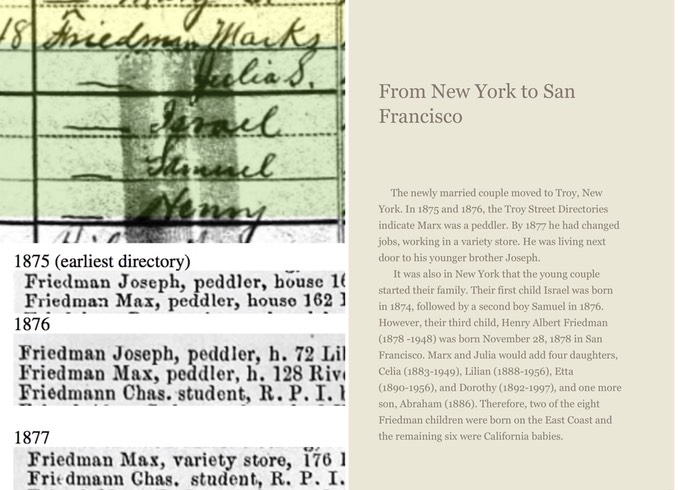 48 Friedman Marks
— Julia S.
— Israel
— Samuel
— Henry
1875 (earliest directory)
Friedman Joseph, peddler, house 16
Friedman Max, peddler, house 162
1876
Friedman Joseph, peddler, h. 72 Lil
Friedman Max, peddler, h. 128 Riv
Friedmann Chas. student, R. P. I.
1877
Friedman Max, variety store, 176
Friedmann Chas. student, R. P. I.
From New York to San
Francisco
The newly married couple moved to Troy, New
York. In 1875 and 1876, the Troy Street Directories
indicate Marx was a peddler. By 1877 he had changed
jobs, working in a variety store. He was living next
door to his younger brother Joseph.
It was also in New York that the young couple
started their family. Their first child Israel was born
in 1874, followed by a second boy Samuel in 1876.
However, their third child, Henry Albert Friedman
(1878 -1948) was born November 28, 1878 in San
Francisco. Marx and Julia would add four daughters,
Celia (1883-1949), Lilian (1888-1956), Etta
(1890-1956), and Dorothy (1892-1997), and one more
son, Abraham (1886). Therefore, two of the eight
Friedman children were born on the East Coast and
the remaining six were California babies.